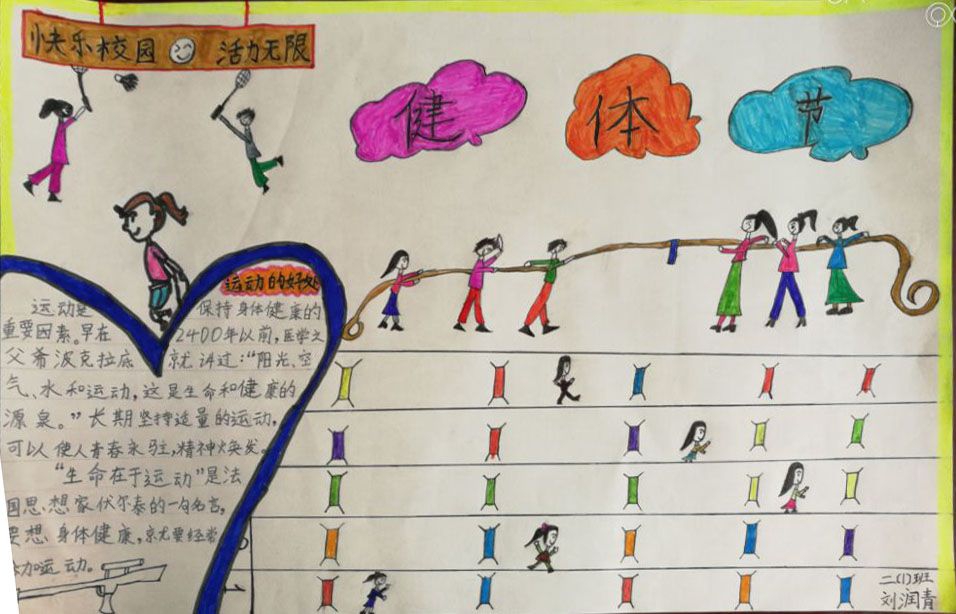 快乐校园 活力无限
健 体 节
运动的好处
运动是保持身体健康的
重要因素。早在2400年以前,医学之
父希波克拉底就讲过:“阳光、空
气、水和运动,这是生命和健康的
源泉。”长期坚持适量的运动,
可以使人青春永驻,精神焕发。
“生命在于运动”是法
国思想家伏尔泰的一句名言,
要想身体健康,就要经常
参加运动。
二(1)班
刘润青